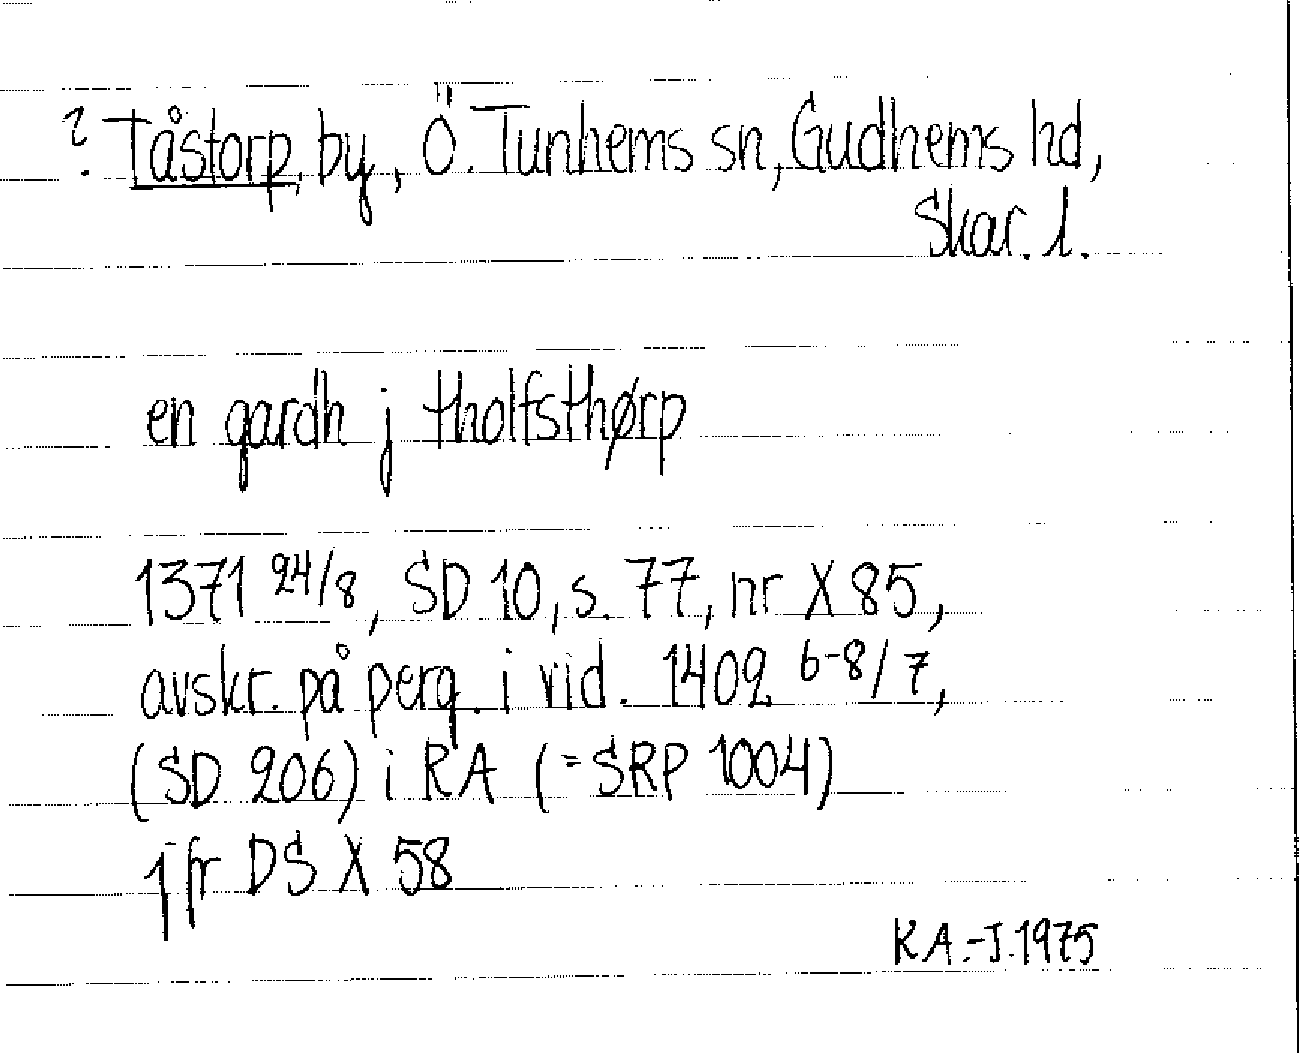 ? Tåstorp, by, Ö. Tunhems sn, Gudhems hd,
Skar. l.
en gardh j tholfsthørp
1371 24/8, SD 10, s. 77, nr X 85,
avskr. på perg. i vid. 1402 6-8/7,
(SD 206) i RA (=SRP 1004)
jfr DS X 58
K.A.-J. 1975